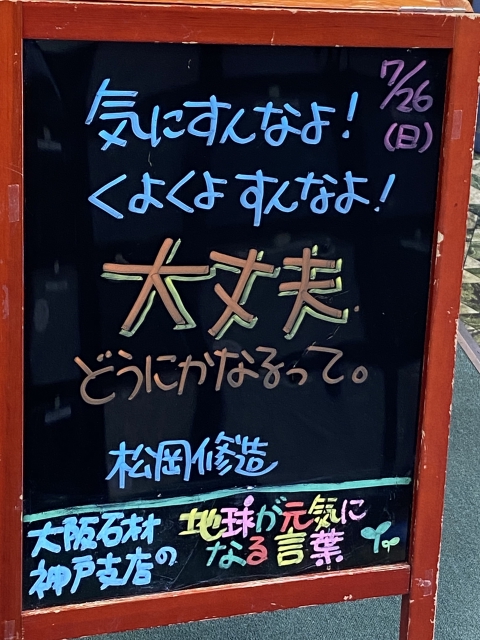 7/26
(日)
気にすんなよ!
くよくよすんなよ!
大丈夫
どうにかなるって。
松岡修造
大阪石材
神戸支店の
地球が元気に
なる言葉